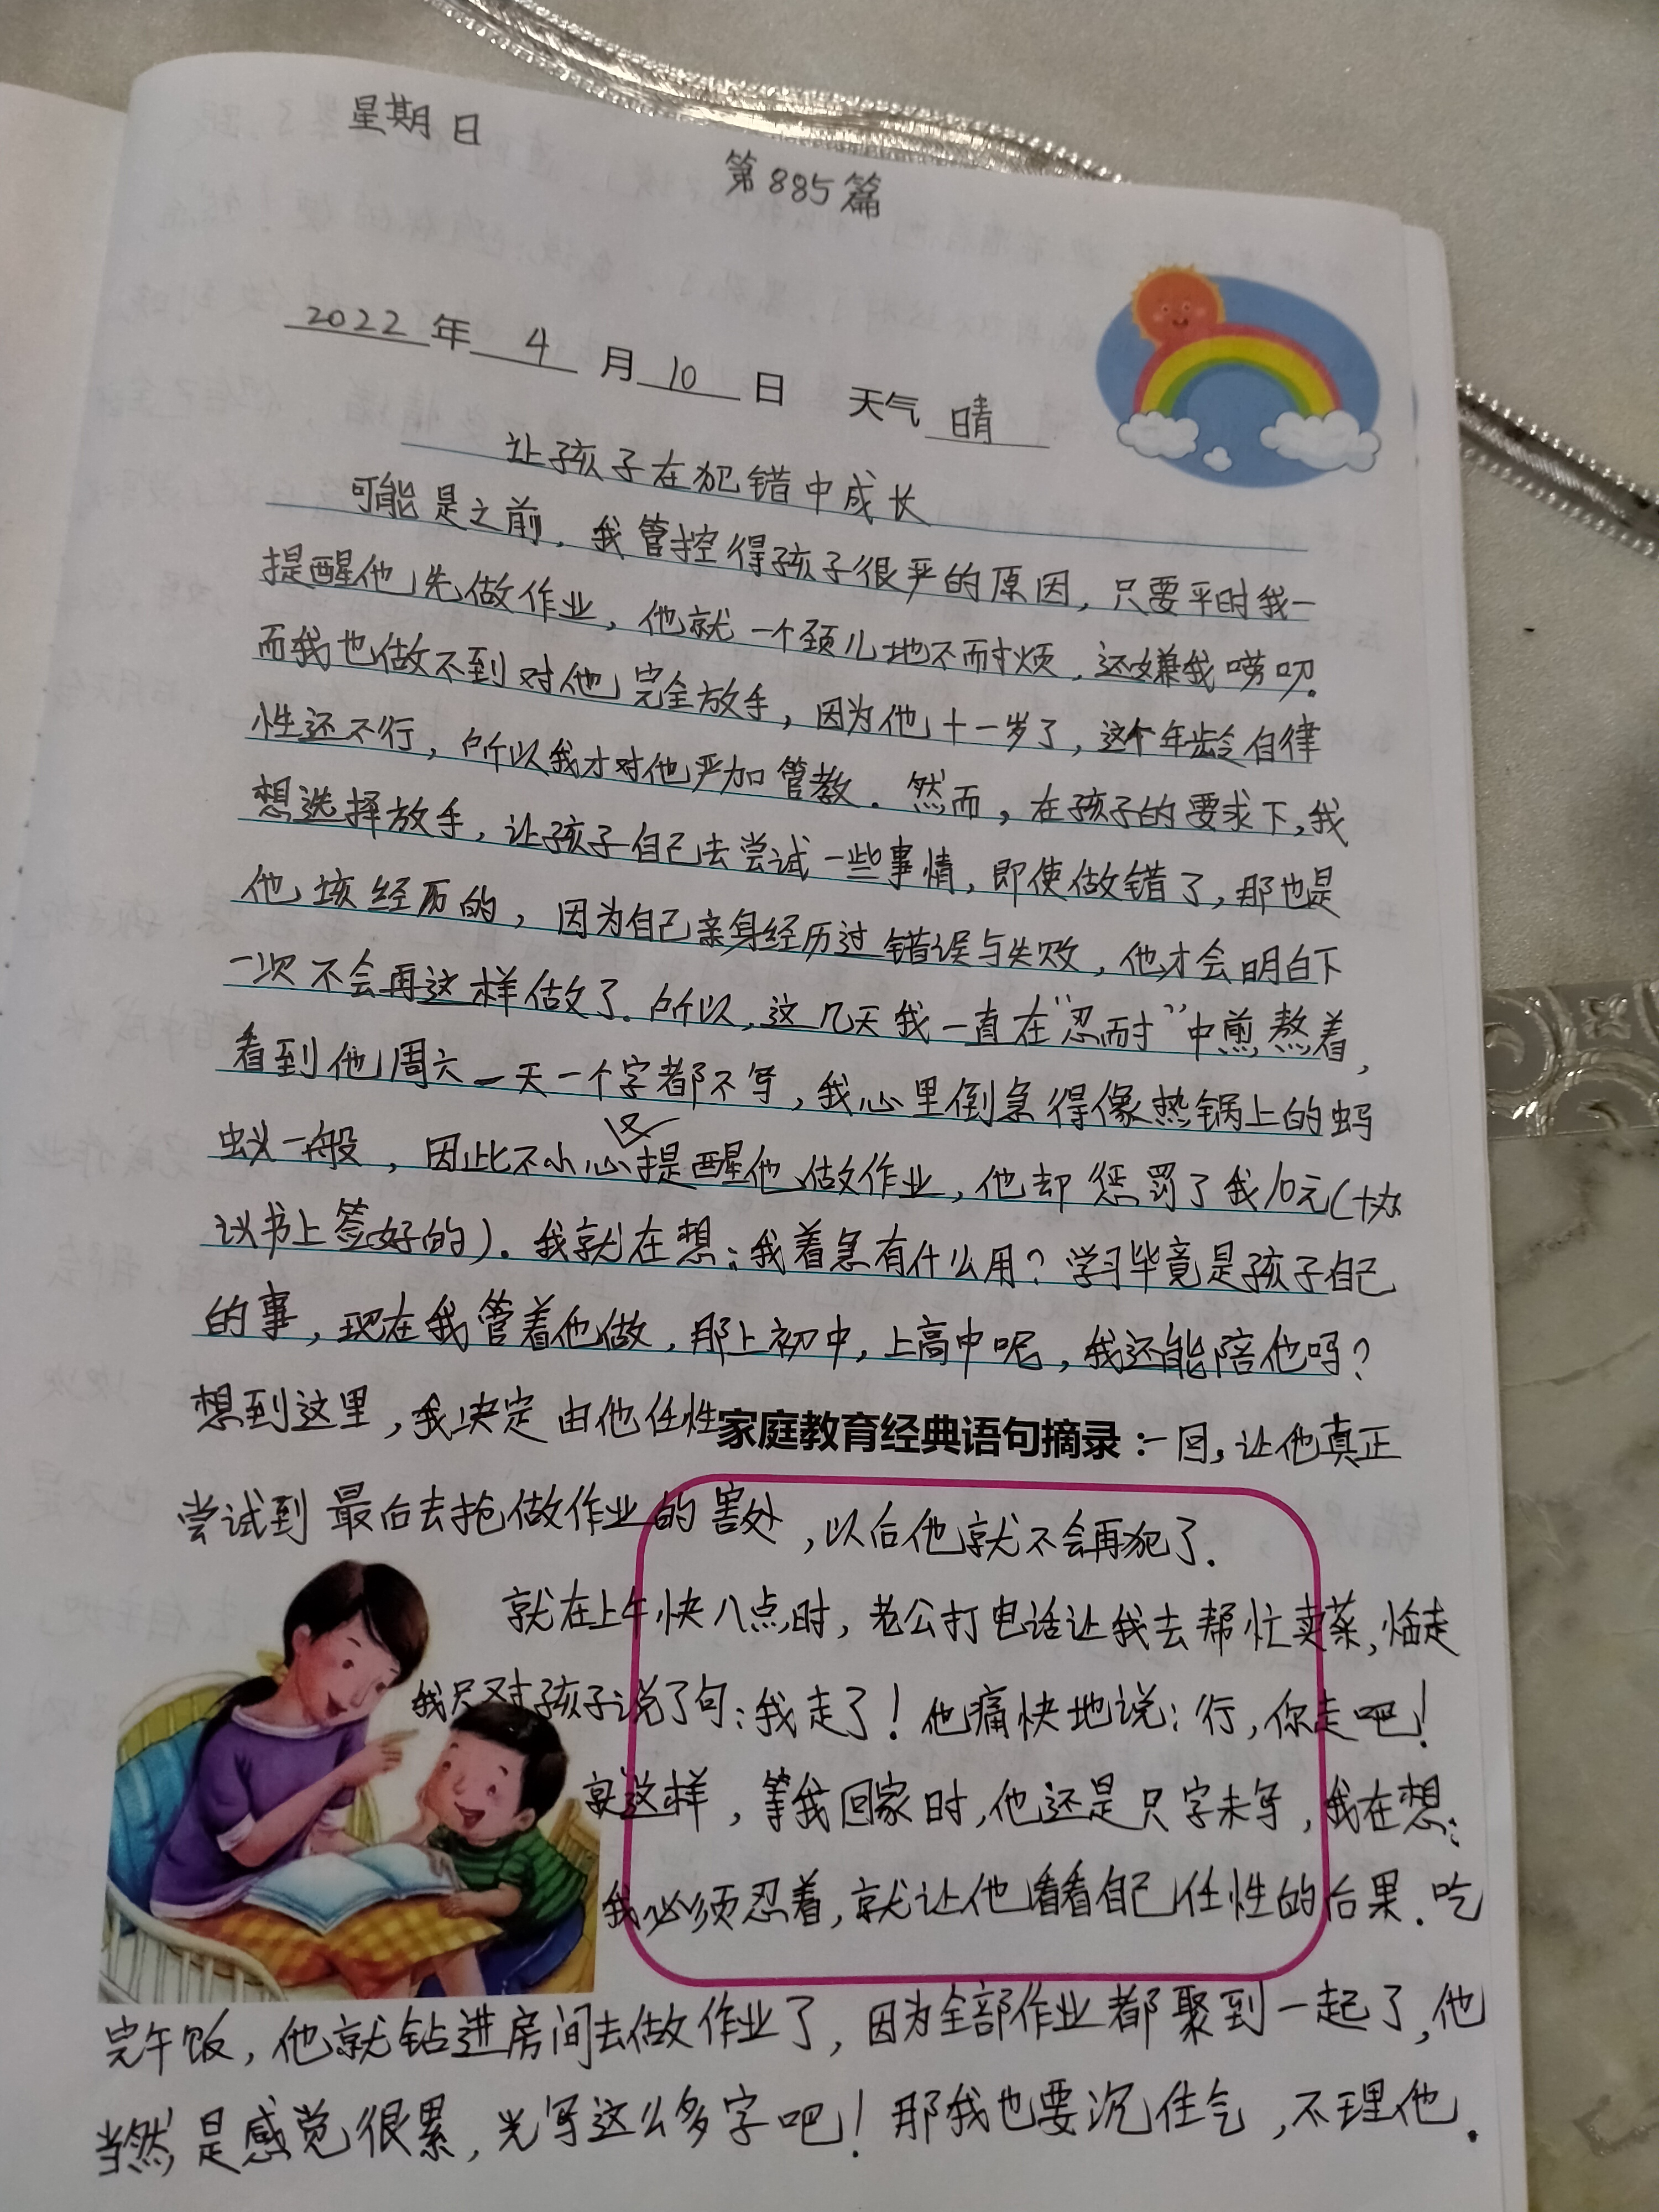 星期日
第885篇
2022年4月10日 天气晴
让孩子在犯错中成长
可能是之前，我管控得孩子很严的原因，只要平时我一
提醒他先做作业，他就一个颈儿地不耐烦，还嫌我唠叨。
而我也做不到对他完全放手，因为他十一岁了，这个年龄自律
性还不行，所以我才对他严加管教。然而，在孩子的要求下，我
想选择放手，让孩子自己去尝试一些事情，即使做错了，那也是
他该经历的，因为自己亲身经历过错误与失败，他才会明白下
一次不会再这样做了。所以，这几天我一直在“忍耐”中煎熬着，
看到他周六一天一个字都不写，我心里倒急得像热锅上的蚂
蚁一般，因此不小心又提醒他做作业，他却惩罚了我10元（协
议书上签好的）。我就在想：我着急有什么用？学习毕竟是孩子自己
的事，现在我管着他做，那上初中，上高中呢，我还能陪他吗？
想到这里，我决定由他任性家庭教育经典语句摘录：一回，让他真正
尝试到最后去抢做作业的害处，以后他就不会再犯了.
就在上午快八点时，老公打电话让我去帮忙卖菜，临走
我只对孩子说了句：我走了！他痛快地说：行，你走吧！
就这样，等我回家时，他还是只字未写，我在想：
我必须忍着，就让他看看自己任性的后果.吃
完午饭，他就钻进房间去做作业了，因为全部作业都聚到一起了，他
当然是感觉很累，光写这么多字吧！那我也要沉住气，不理他.